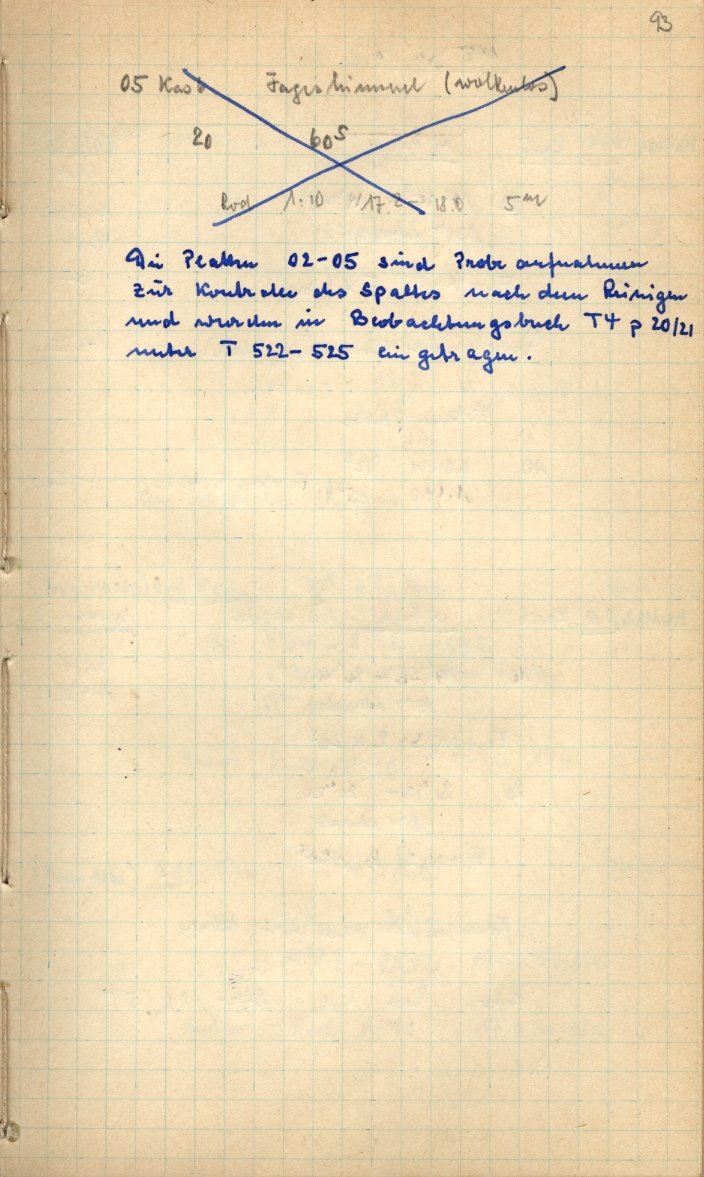 93
05 Kast Tageshimmel (wolkenlos)
20 60s
Rod 1:10 17.2- 18.0 5m
Die Platten 02-05 sind Probeaufnahmen
zur Kontrolle des Spaltes nach dem Reinigen
und wurden in Beobachtungsbuch T4 p 20/21
unter T 522-525 eingetragen.